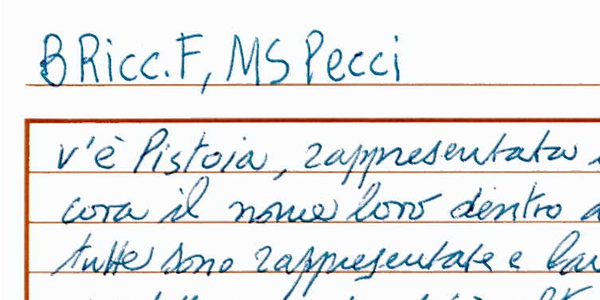 BRicc.F, MS Pecci
v'è Pistoia, rappresentata
cora il nome loro dentro a
tutte sono rappresentate e